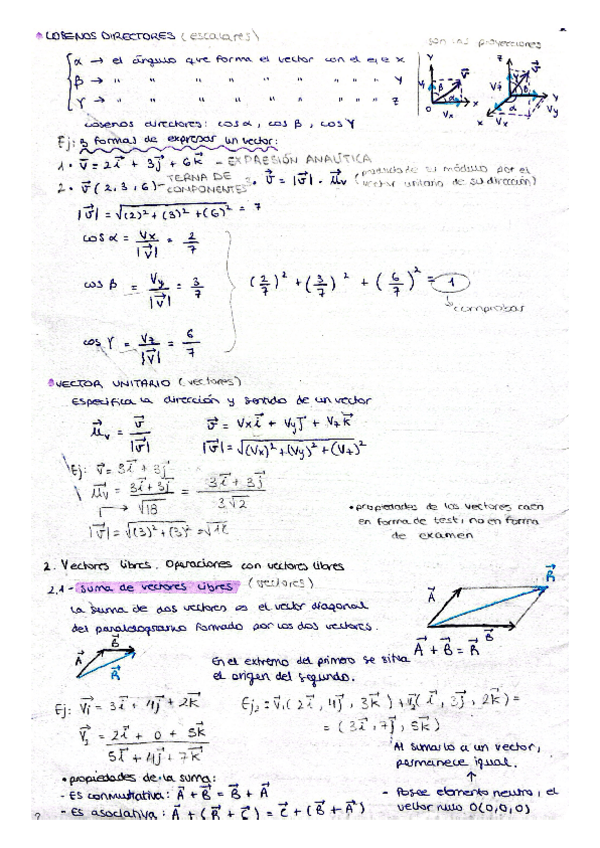 COSENOS DIRECTORES (escalares)
son las proyecciones
α → el ángulo que forma el vector con el eje x
β → " " " " " " " " " y
γ → " " " " " " " " " z
cosenos directores: cos α, cos β, cos γ
Ej: 3 formas de expresar un vector:
1. v = 2i + 3j + 6k - EXPRESIÓN ANALÍTICA
2. v (2, 3, 6) - TERNA DE COMPONENTES
3. v = |v| · μv (producto de su módulo por el vector unitario de su dirección)
|v| = √(2)² + (3)² + (6)² = 7
cos α = Vx / |v| = 2/7
cos β = Vy / |v| = 3/7
(2/7)² + (3/7)² + (6/7)² = 1
↳ comprobar
cos γ = Vz / |v| = 6/7
VECTOR UNITARIO (vectores)
Especifica la dirección y sentido de un vector
μv = v / |v|
v = Vx i + Vy j + Vz k
|v| = √(Vx)² + (Vy)² + (Vz)²
Ej: v = 3i + 3j
μv = 3i + 3j / √18 = 3i + 3j / 3√2
|v| = √(3)² + (3)² = √18
• propiedades de los vectores caen
en forma de test, no en forma
de examen
2. Vectores libres. Operaciones con vectores libres
2.1 - suma de vectores libres (vectores)
La suma de dos vectores es el vector diagonal
del paralelogramo formado por los dos vectores.
A B R
A + B = R
A B R
En el extremo del primero se sitúa
el origen del segundo.
Ej: V1 = 3i + 4j + 2k
V2 = 2i + 0 + 5k
5i + 4j + 7k
Ej2: V1 (2i, 4j, 3k) + V2 (i, 3j, 2k) =
= (3i, 7j, 5k)
Al sumarlo a un vector,
permanece igual.
↑
• propiedades de la suma:
- Es conmutativa: A + B = B + A
- Posee elemento neutro, el
vector nulo O(0,0,0)
- Es asociativa: A + (B + C) = C + (B + A)